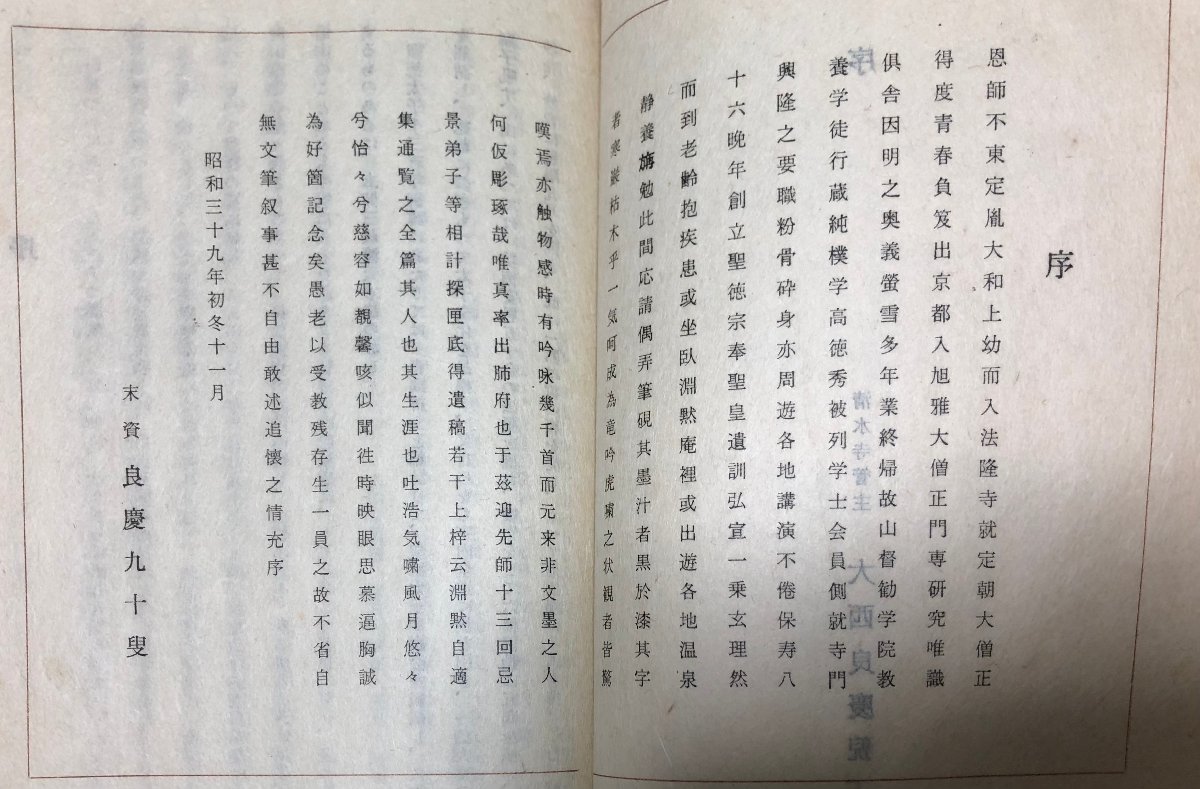 序
恩師不東定胤大和上幼而入法隆寺就定朝大僧正
得度青春負笈出京都入旭雅大僧正門専研究唯識
倶舎因明之奥義螢雪多年業終帰故山督勧学院教
養学徒行蔵純樸学高徳秀被列学士会員側就寺門
興隆之要職粉骨砕身亦周遊各地講演不倦保寿八
十六晩年創立聖徳宗奉聖皇遺訓弘宣一乗玄理然
而到老齢抱疾患或坐臥淵黙庵裡或出遊各地温泉
静養旃勉此間応請偶弄筆硯其墨汁者黒於漆其字
者寒巌枯木乎一気呵成為竜吟虎嘯之状観者皆驚
嘆焉亦触物感時有吟咏幾千首而元来非文墨之人
何仮彫琢哉唯真率出肺府也于茲迎先師十三回忌
景弟子等相計探匣底得遺稿若干上梓云淵黙自適
集通覧之全篇其人也其生涯也吐浩気嘯風月悠々
兮怡々兮慈容如覩馨咳似聞徃時映眼思慕逼胸誠
為好箇記念矣愚老以受教残存生一員之故不省自
無文筆叙事甚不自由敢述追懐之情充序
昭和三十九年初冬十一月
末資良慶九十叟
序
清水寺管主 大西良慶猊